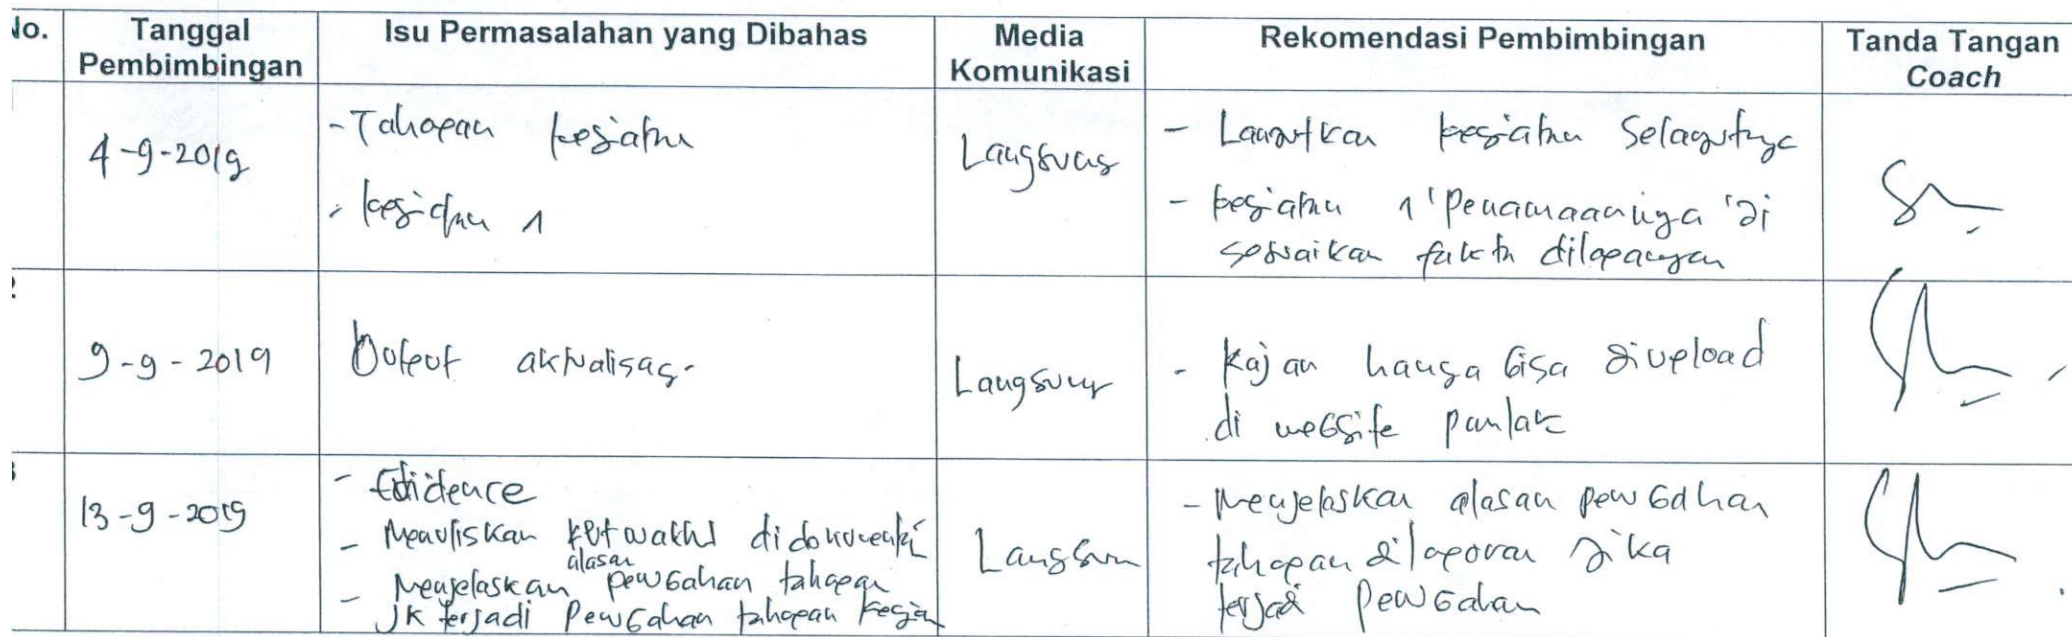 No. Tanggal Pembimbingan Isu Permasalahan yang Dibahas Media Komunikasi Rekomendasi Pembimbingan Tanda Tangan Coach
4-9-2019
- Tahapan kegiatan
- kegiatan 1
Langsung
- Lanjutkan kegiatan Selanjutnya
- kegiatan 1 'Penamaannya 'di
sesuaikan fakta dilapangan
9-9-2019
Output aktualisasi
Langsung
- Kajian hanya bisa diupload
di website
13-9-2019
- Evidence
- Menuliskan ket waktu didokumentasi
- Menjelaskan alasan perubahan tahapan
jk terjadi Perubahan tahapan kegiatan
Langsung
- Menjelaskan alasan perubahan
tahapan dilaporan jika
terjadi Perubahan